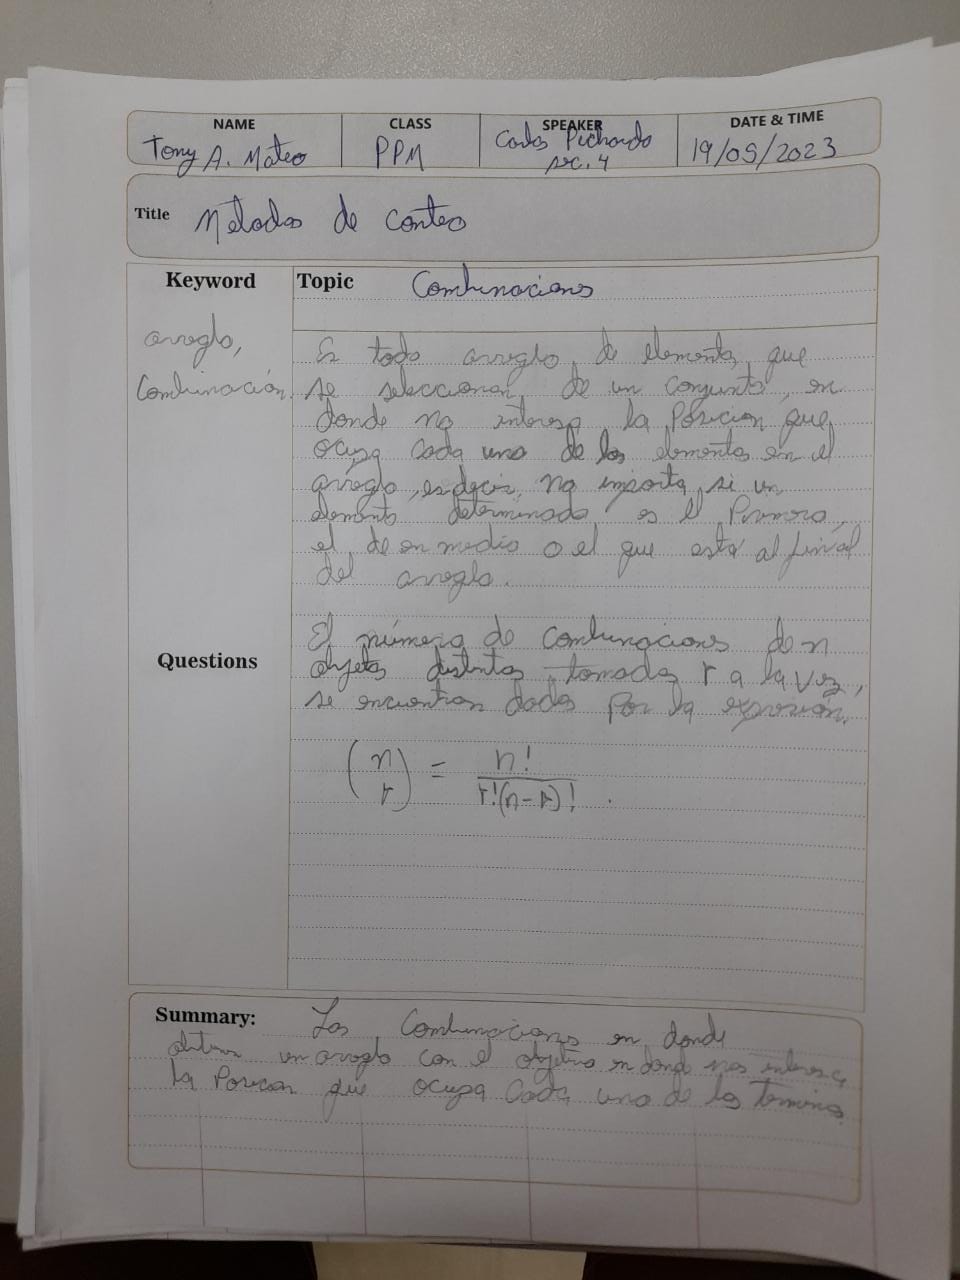 NAME CLASS SPEAKER DATE & TIME
Tony A. Mateo PPM Carlos Pichardo 19/05/2023
sec. 4
Title Metodos de conteo
Keyword Topic Combinaciones
arreglo,
Combinación
Es todo arreglo de elementos que
se seleccionan de un conjunto, en
donde no interesa la Posicion que
ocupa cada uno de los elementos en el
arreglo, es decir, no importa si un
elemento determinado es el Primero,
el de en medio o el que está al final
del arreglo.
Questions
El número de combinaciones de n
objetos distintos, tomados r a la vez,
se encuentran dados por la expresión.
(n r) = n! / r!(n-r)! .
Summary: Las Combinaciones en donde
un arreglo con el objetivo en donde nos interesa
la Posicion que ocupa Cada uno de los terminos